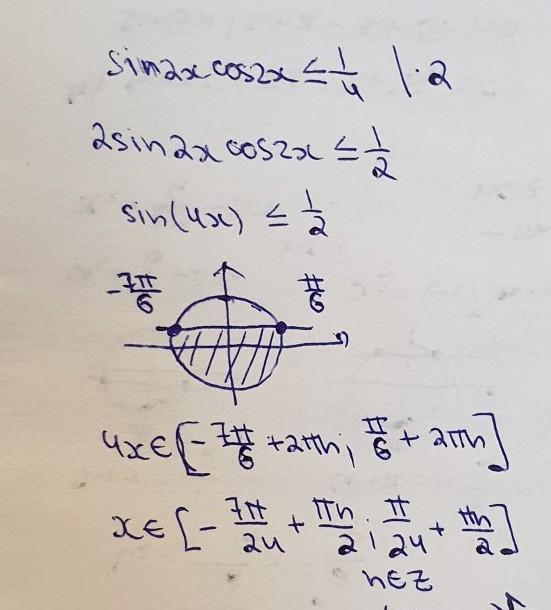 sin2xcos2x ≤ 1/4 |·2
2sin2xcos2x ≤ 1/2
sin(4x) ≤ 1/2
-7π/6 π/6
4x∈[-7π/6 + 2πn; π/6 + 2πn]
x∈[-7π/24 + πn/2; π/24 + πn/2]
n∈Z